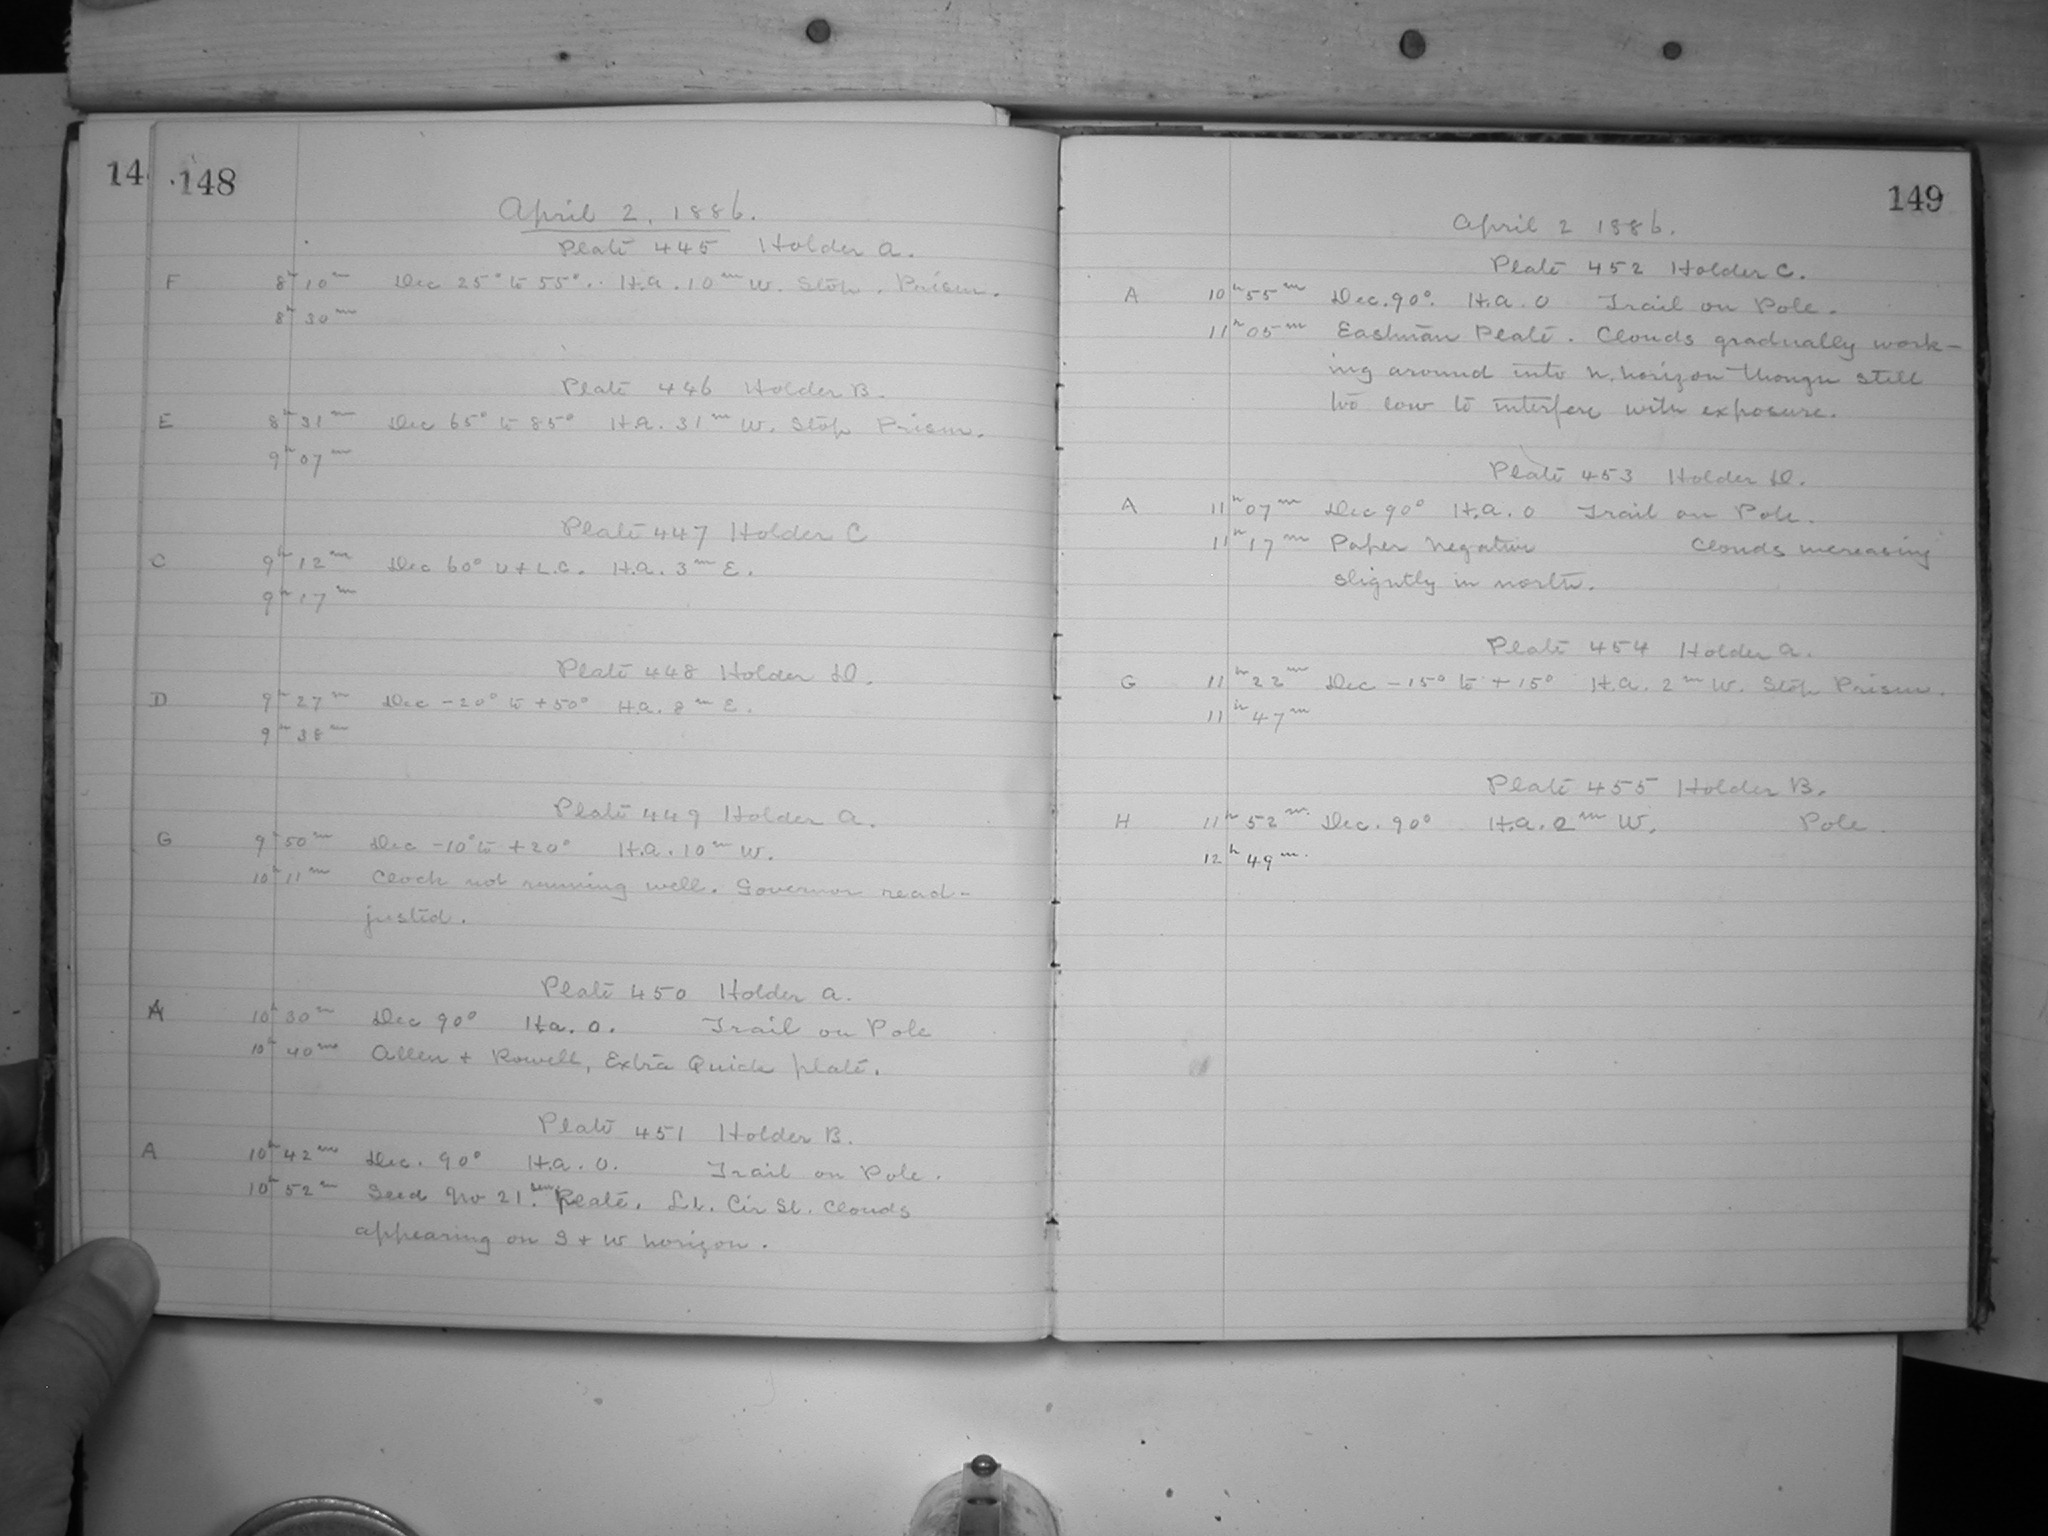 14
148
April 2, 1886.
Plate 445 Holder A.
F 8h 10m Dec 25° to 55°.. H.A. 10m W. Stop. Prism.
8h 30m
Plate 446 Holder B.
E 8h 31m Dec 65° to 85° H.A. 31m W. Stop Prism.
9h 07m
Plate 447 Holder C
C 9h 12m Dec 60° U + L.C. H.A. 3m E.
9h 17m
Plate 448 Holder D.
D 9h 27m Dec -20° to +50° H.A. 8m E.
9h 38m
Plate 449 Holder A.
G 9h 50m Dec -10° to +20° H.A. 10m W.
10h 11m Clock not running well. Governor read-
justed.
Plate 450 Holder A.
A 10h 30m Dec 90° H.A. 0. Trail on Pole
10h 40m Allen + Rowell, Extra Quick plate.
Plate 451 Holder B.
A 10h 42m Dec. 90° H.A. 0. Trail on Pole.
10h 52m Seed No 21. Plate. Lt. Cir St. Clouds
appearing on S + W horizon.
149
April 2 1886.
Plate 452 Holder C.
A 10h 55m Dec. 90°. H.A. 0 Trail on Pole.
11h 05m Eastman Plate. Clouds gradually work-
ing around into N. horizon though still
too low to interfere with exposure.
Plate 453 Holder D.
A 11h 07m Dec 90° H.A. 0 Trail on Pole.
11h 17m Paper Negative Clouds increasing
slightly in north.
Plate 454 Holder A.
G 11h 22m Dec -15° to +15° H.A. 2m W. Stop Prism.
11h 47m
Plate 455 Holder B.
H 11h 52m. Dec. 90° H.A. 2m W. Pole.
12h 49m.